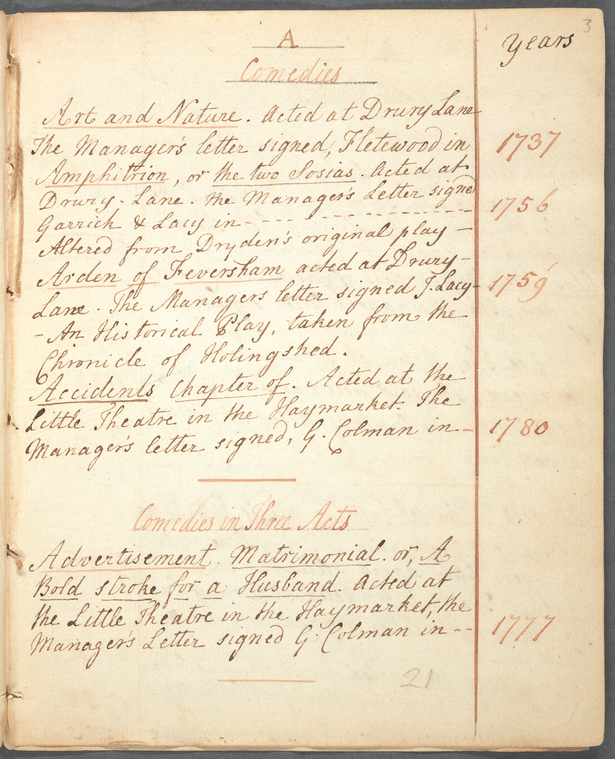 3
A
Years
Comedies
Art and Nature. Acted at Drury Lane
The Manager's letter signed, Fletewood in 1737
Amphitrion, or the two Sosias. Acted at
Drury-Lane. the Manager's Letter signed
Garrick & Lacy in - - - - - - - - - - 1756
Altered from Dryden's original play —
Arden of Feversham acted at Drury-
Lane. The Managers letter signed J. Lacy- 1759
- An Historical Play, taken from the
Chronicle of Holingshed.
Accidents Chapter of. Acted at the
Little Theatre in the Haymarket. The
Manager's letter signed, G. Colman in - 1780
Comedies in Three Acts
Advertisement Matrimonial. or, A
Bold stroke for a Husband. Acted at
the Little Theatre in the Haymarket, the
Manager's Letter signed G. Colman in -- 1777
21